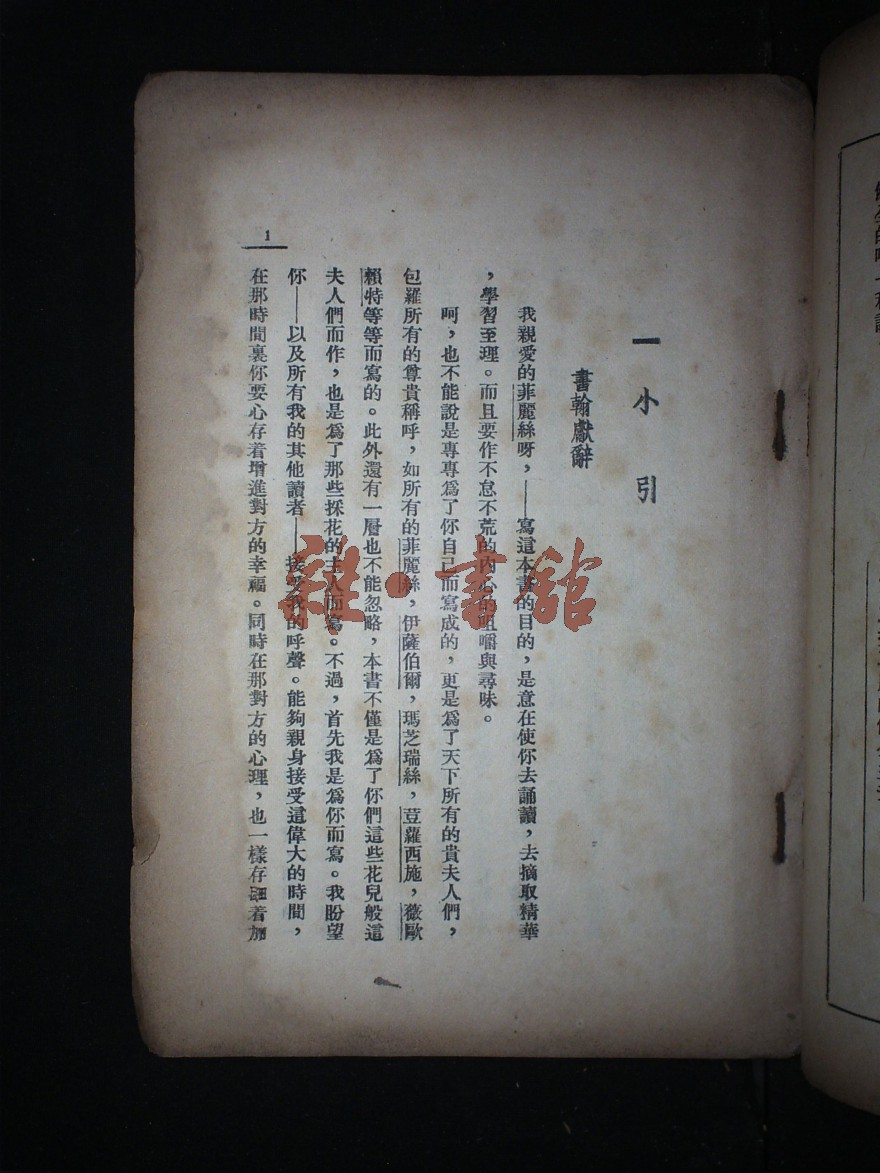 一 小引
書翰獻辭
我親愛的菲麗絲呀，——寫這本書的目的，是意在使你去誦讀，去摘取精華
，學習至理。而且要作不怠不荒的內心的咀嚼與尋味。
呵，也不能說是專專爲了你自己而寫成的，更是爲了天下所有的貴夫人們，
包羅所有的尊貴稱呼，如所有的菲麗絲，伊薩伯爾，瑪芝瑞絲，荳羅西施，薇歐
賴特等等而寫的。此外還有一層也不能忽略，本書不僅是爲了你們這些花兒般這
夫人們而作，也是爲了那些採花的主人而寫。不過，首先我是爲你而寫。我盼望
你——以及所有我的其他讀者——接受我的呼聲。能夠親身接受這偉大的時間，
在那時間裏你要心存着增進對方的幸福。同時在那對方的心理，也一樣存着加
1
雜·書館